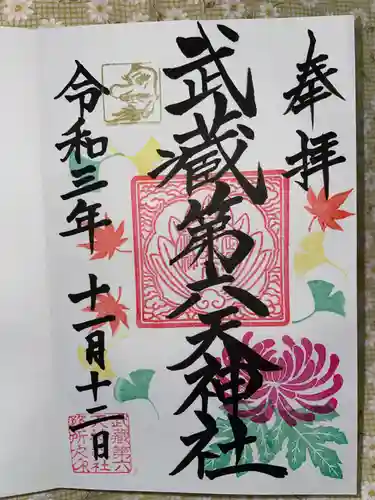 奉拝
武蔵第六天神社
令和三年 十一月十二日
武蔵第六
天神社